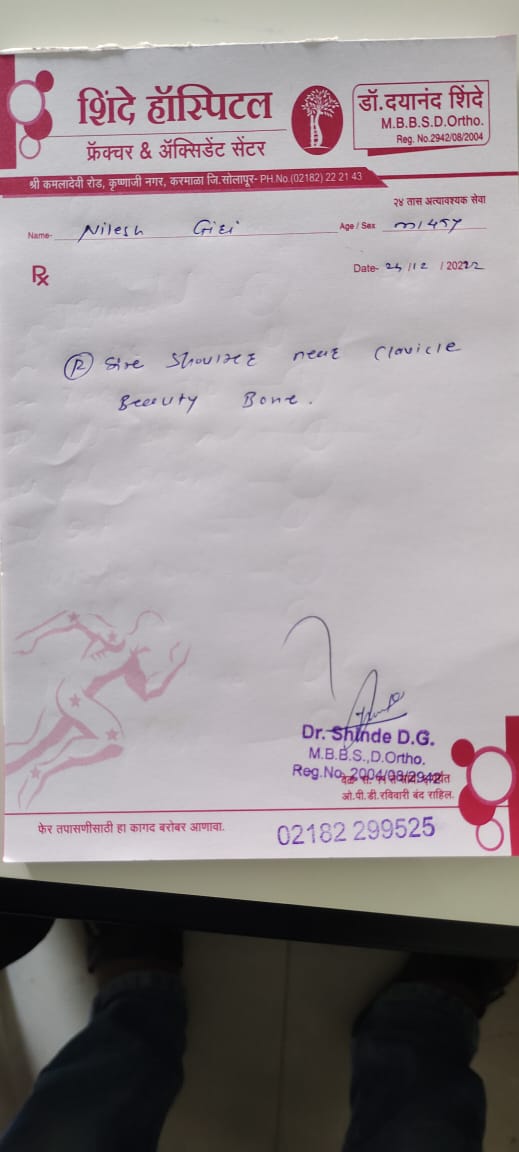 शिंदे हॉस्पिटल
फ्रॅक्चर & ॲक्सिडेंट सेंटर
डॉ.दयानंद शिंदे
M.B.B.S.D.Ortho.
Reg. No.2942/08/2004
श्री कमलादेवी रोड, कृष्णाजी नगर, करमाळा जि.सोलापूर- PH.No.(02182) 22 21 43
२४ तास अत्यावश्यक सेवा
Name- Nilesh Giri Age / Sex m/45y
Rx
Date- /12 / 2022
(R) Shoulder near Clavicle
Beauty Bone.
Dr. Shinde D.G.
M.B.B.S.,D.Ortho.
Reg.No. 2004/08/2942
ओ.पी.डी.रविवारी बंद राहिल.
फेर तपासणीसाठी हा कागद बरोबर आणावा.
02182 299525